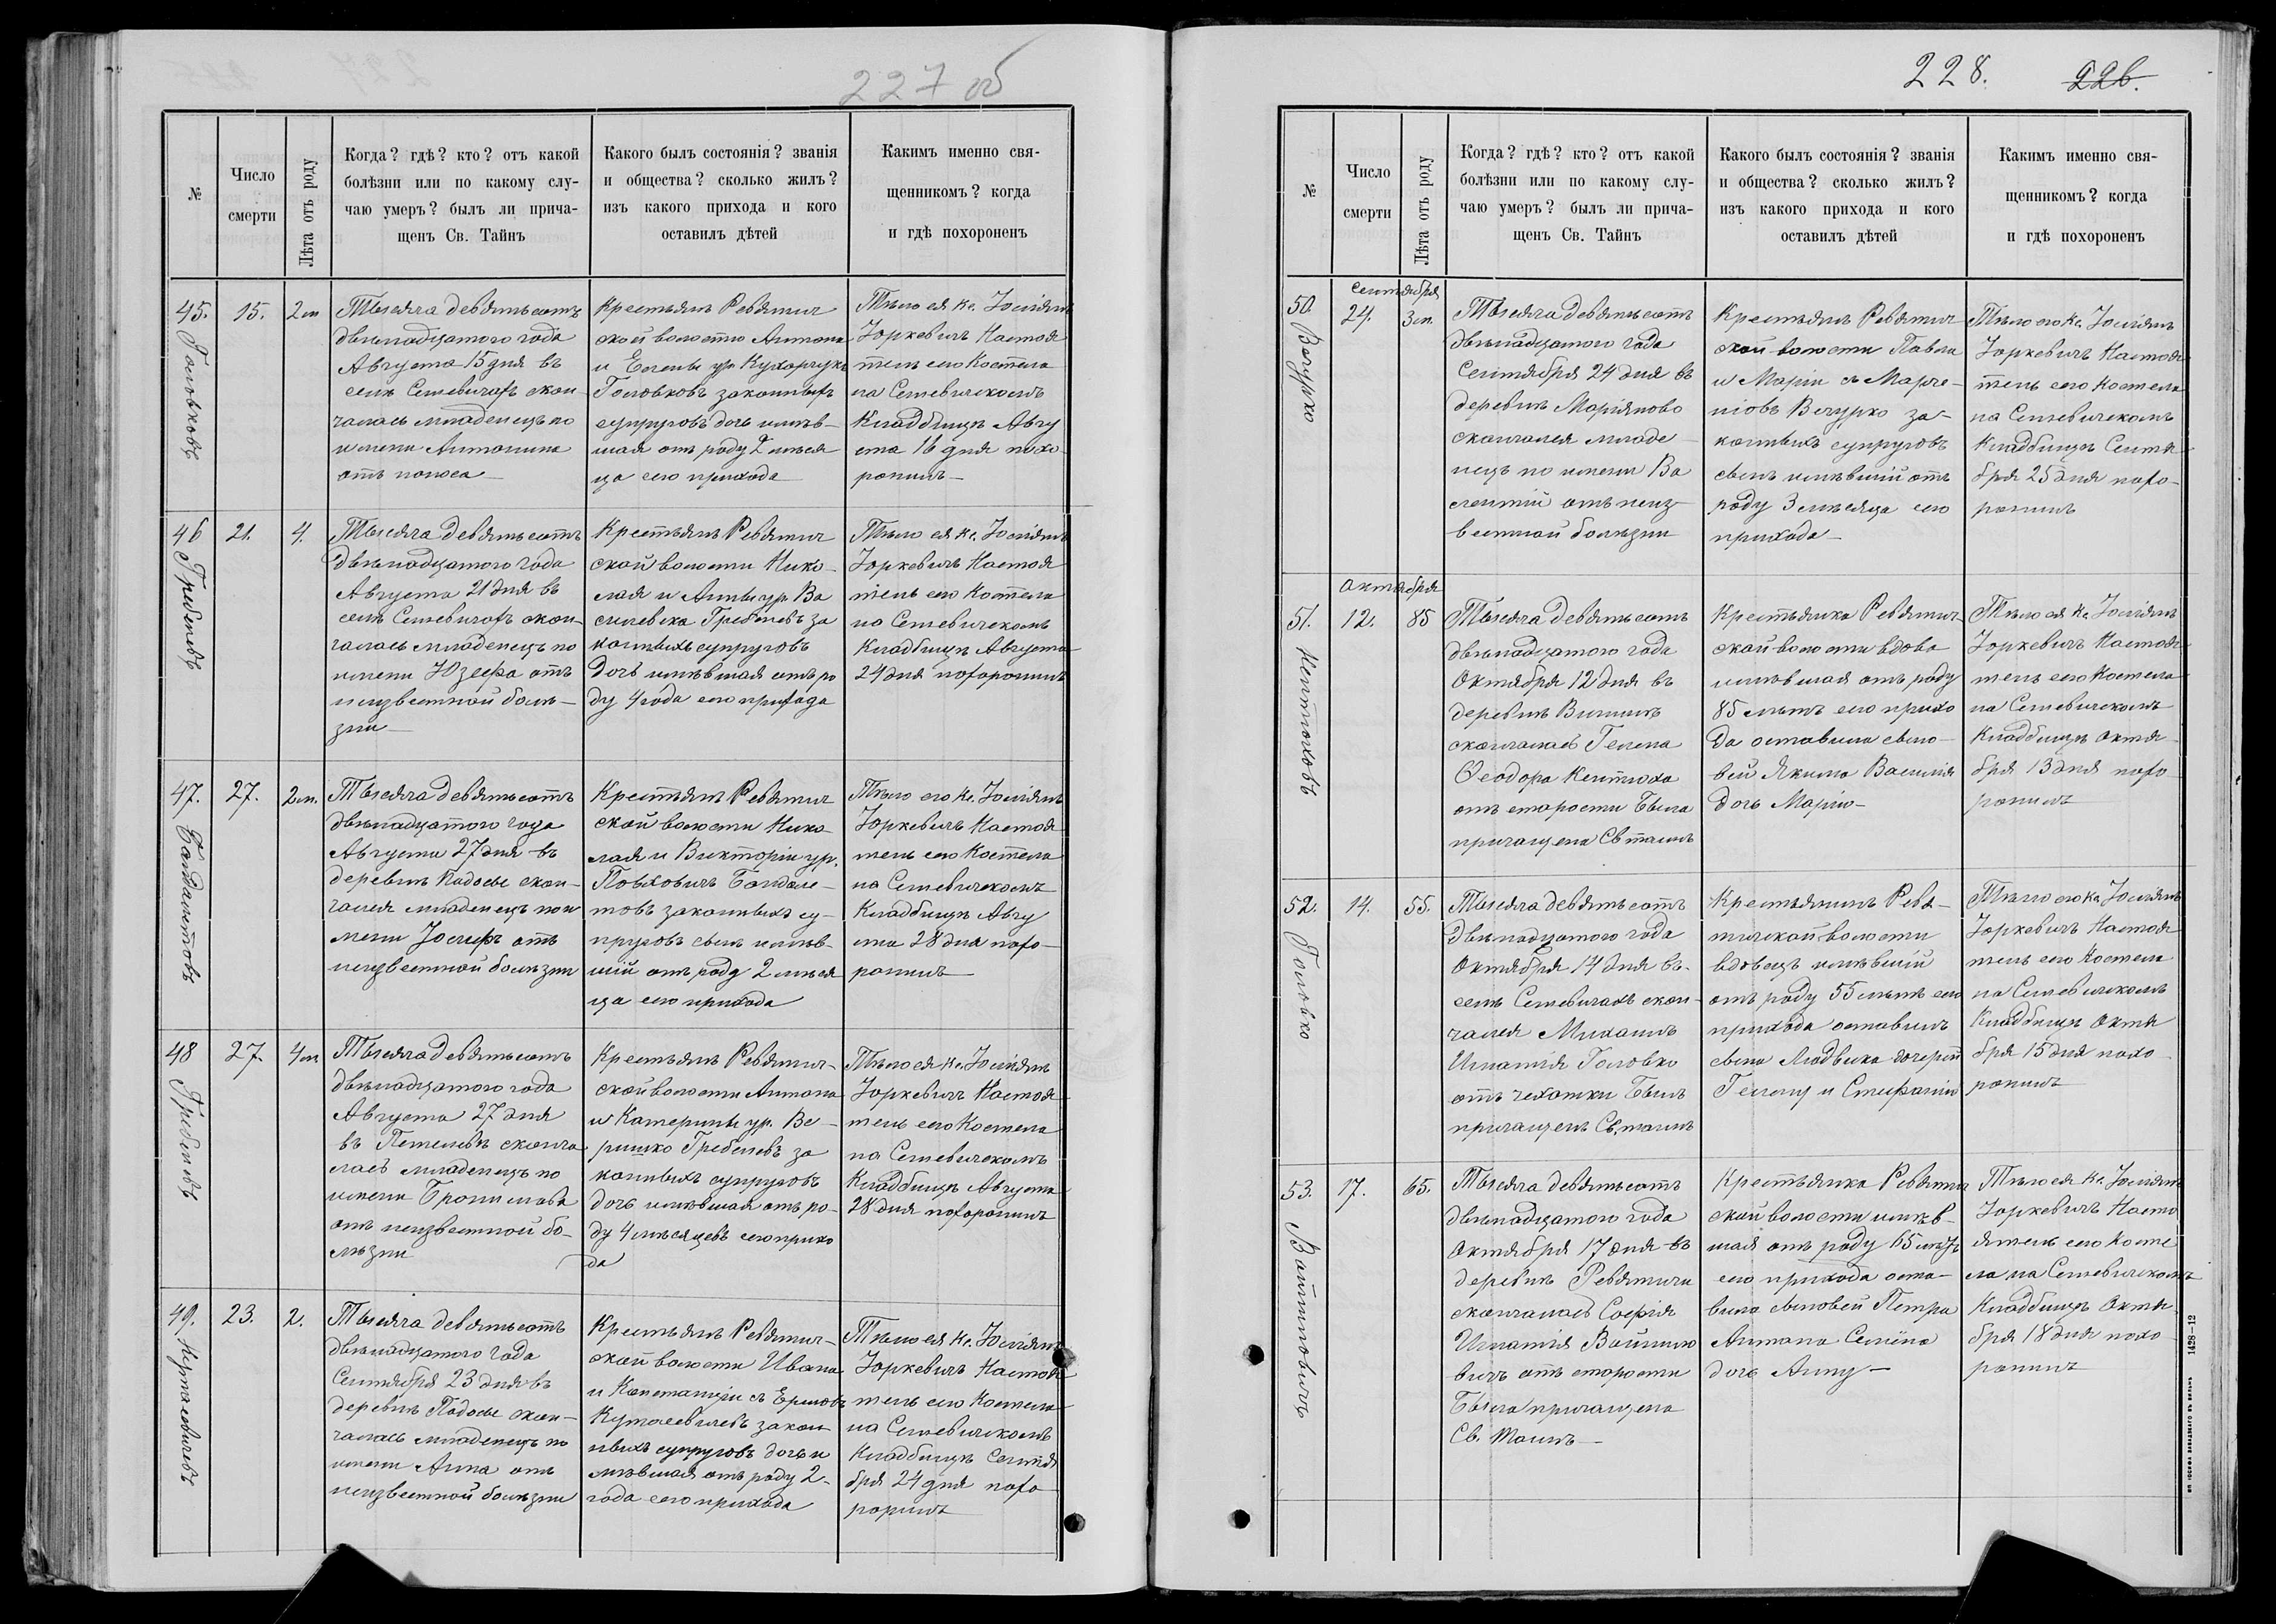 227 об
№
Число
смерти
Лѣта отъ роду
Когда? гдѣ? кто? отъ какой
болѣзни или по какому слу-
чаю умеръ? былъ ли прича-
щенъ Св. Тайнъ
Какого былъ состоянія? званія
и общества? сколько жилъ?
изъ какого прихода и кого
оставилъ дѣтей
Какимъ именно свя-
щенникомъ? когда
и гдѣ похороненъ
45.
Головковъ
15.
2 м
Тысяча девятьсотъ
двѣнадцатого года
Августа 15 дня въ
селѣ Сегневичахъ скон-
чалась младенецъ по
имени Антонина
отъ поноса
Крестьянъ Ревятич
ской волости Антона
и Елены ур. Кухарчукъ
Головковъ законныхъ
супруговъ дочь имѣв-
шая отъ роду 2 мѣся
ца сего прихода
Тѣло ея Кс.
Юркевичъ Настоя
тель сего Костела
на Сегневичскомъ
Кладбищѣ Авгу
ста 16 дня похо
ронилъ
46
21.
4.
Тысяча девятьсотъ
двѣнадцатого года
Августа 21 дня въ
селѣ Сегневичахъ скон-
чалась младенецъ по
имени Юзефа отъ
неизвестной болѣ-
зни
Крестьянъ Ревятич
ской волости Нико
лая и Анны ур. Ва
за
конныхъ супруговъ
дочь имѣвшая отъ ро
ду 4 года сего прихода
Тѣло ея Кс.
Юркевичъ Настоя
тель сего Костела
на Сегневичскомъ
Кладбищѣ Августа
24 дня похоронилъ
47.
27.
2 м.
Тысяча девятьсотъ
двѣнадцатого года
Августа 27 дня въ
деревнѣ Подосье скон-
чался младенецъ по и
мени Іосифъ отъ
неизвестной болѣзни
Крестьянъ Ревятич
ской волости Нико
лая и Викторіи ур.
законныхъ су-
пруговъ сынъ имѣв-
шій отъ роду 2 мѣся
ца сего прихода
Тѣло его Кс.
Юркевичъ Настоя
тель сего Костела
на Сегневичскомъ
Кладбищѣ Авгу
ста 28 дня похо-
ронилъ
48
27.
4 м
Тысяча девятьсотъ
двѣнадцатого года
Августа 27 дня
въ сконча
лась младенецъ по
имени Бронислава
отъ неизвестной бо-
лѣзни
Крестьянъ Ревятич-
ской волости Антона
и Катерины ур. Ве-
за
конныхъ супруговъ
дочь имѣвшая отъ ро-
ду 4 мѣсяцевъ сего прихо
да
Тѣло ея Кс.
Юркевичъ Настоя
тель сего Костела
на Сегневичскомъ
Кладбищѣ Августа
28 дня похоронилъ
49.
23.
2.
Тысяча девятьсотъ
двѣнадцатого года
Сентября 23 дня въ
деревнѣ Подосье скон-
чалась младенецъ по
имени Анна отъ
неизвестной болѣзни
Крестьянъ Ревятич-
ской волости Ивана
и Констанціи
закон
ныхъ супруговъ дочь и
мѣвшая отъ роду 2
года сего прихода
Тѣло ея Кс.
Юркевичъ Настоя
тель сего Костела
на Сегневичскомъ
Кладбищѣ Сентя
бря 24 дня похо
ронилъ
228.
226.
№
Число
смерти
Лѣта отъ роду
Когда? гдѣ? кто? отъ какой
болѣзни или по какому слу-
чаю умеръ? былъ ли прича-
щенъ Св. Тайнъ
Какого былъ состоянія? званія
и общества? сколько жилъ?
изъ какого прихода и кого
оставилъ дѣтей
Какимъ именно свя-
щенникомъ? когда
и гдѣ похороненъ
сентября
50.
24.
3 м.
Тысяча девятьсотъ
двѣнадцатого года
Сентября 24 дня въ
деревнѣ Маріяново
скончался младе
нецъ по имени Ва
лентій отъ неиз
вестной болѣзни
Крестьянъ Ревятич
ской волости Павла
и Маріи
за-
конныхъ супруговъ
сынъ имѣвшій отъ
роду 3 мѣсяца сего
прихода
Тѣло его Кс.
Юркевичъ Настоя
тель сего Костела
на Сегневичскомъ
Кладбищѣ Сентя
бря 25 дня похо-
ронилъ
октября
51.
Кентюховъ
12.
85
Тысяча девятьсотъ
двѣнадцатого года
Октября 12 дня въ
деревнѣ
скончалась Гелена
Ѳеодора Кентюха
отъ старости Была
причащена Св таинъ
Крестьянка Ревятич
ской волости вдова
имѣвшая отъ роду
85 лѣтъ сего прихо
да оставила сыно-
вей Якима Василія
дочь Марію
Тѣло ея Кс.
Юркевичъ Настоя
тель сего Костела
на Сегневичскомъ
Кладбищѣ Октя
бря 13 дня похо
ронилъ
52.
Головко
14.
55.
Тысяча девятьсотъ
двѣнадцатого года
Октября 14 дня въ
селѣ Сегневичахъ скон-
чался Михаилъ
Игнатія Головко
отъ чехотки Былъ
причащенъ Св. таинъ
Крестьянинъ Ревя-
тичской волости
вдовецъ имѣвшій
отъ роду 55 лѣтъ сего
прихода оставилъ
сына Людвика дочерей
Гелену и Стефанію
Тѣло его Кс.
Юркевичъ Настоя
тель сего Костела
на Сегневичскомъ
Кладбищѣ Октя
бря 15 дня похо
ронилъ
53.
Войтиовичъ
17.
65.
Тысяча девятьсотъ
двѣнадцатого года
Октября 17 дня въ
деревнѣ Ревятичи
скончалась Софія
Игнатія
вичъ отъ старости
Была причащена
Св. Таинъ
Крестьянка Ревятич
ской волости имѣв-
шая отъ роду 65 лѣтъ
сего прихода оста-
вила сыновей Петра
Антона Семёна
дочь Анну
Тѣло ея Кс.
Юркевичъ Насто
ятель сего Косте
ла на Сегневичскомъ
Кладбищѣ Октя-
бря 18 дня похо
ронилъ
1428—12